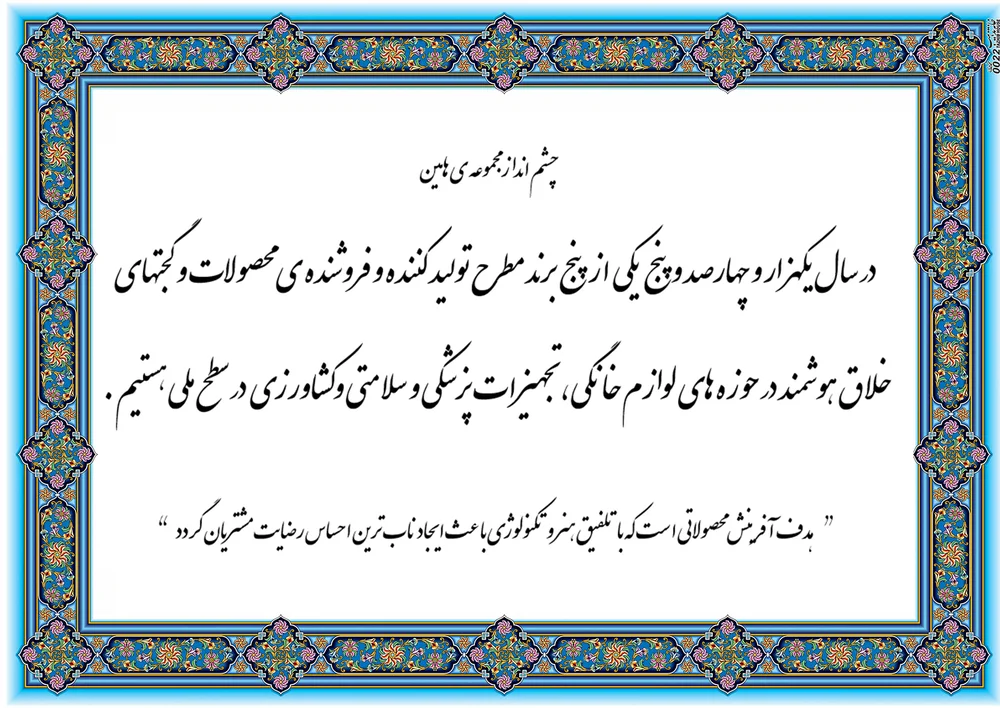 چشم انداز مجموعه ی هامین
در سال یکهزار و چهارصد و پنج یکی از پنج برند مطرح تولید کننده و فروشنده ی محصولات و گجتهای
خلاق هوشمند در حوزه های لوازم خانگی، تجهیزات پزشکی و سلامتی و کشاورزی در سطح ملی هستیم .
” هدف آفرینش محصولاتی است که با تلفیق هنر و تکنولوژی باعث ایجاد ناب ترین احساس رضایت مشتریان گردد “
0022